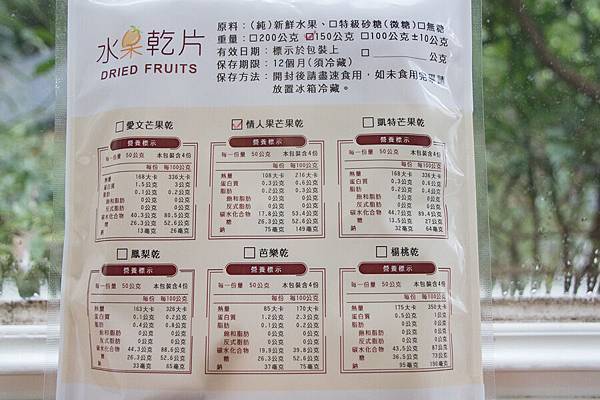 水果乾片
DRIED FRUITS
原料：(純)新鮮水果、□特級砂糖(微糖)□無糖
重量：□200公克 ☑150公克 □100公克 ±10公克
有效日期：標示於包裝上 □ 公克
保存期限：12個月(須冷藏)
保存方法：開封後請盡速食用，如未食用完畢請
放置冰箱冷藏。
□愛文芒果乾
營養標示
每一份量 50公克 本包裝含4份
每份 每100公克
熱量 168大卡 336大卡
蛋白質 1.5公克 3公克
脂肪 0.1公克 0.2公克
飽和脂肪
反式脂肪
碳水化合物 40.3公克 80.5公克
糖 26.3公克 52.6公克
鈉 13毫克 26毫克
☑情人果芒果乾
營養標示
每一份量 50公克 本包裝含4份
每份 每100公克
熱量 108大卡 216大卡
蛋白質 0.3公克 0.6公克
脂肪 0.2公克 0.3公克
飽和脂肪
反式脂肪
碳水化合物 17.8公克 53.4公克
糖 26.3公克 52.6公克
鈉 75毫克 149毫克
□凱特芒果乾
營養標示
每一份量 50公克 本包裝含4份
每份 每100公克
熱量 168大卡 336大卡
蛋白質 0.3公克 0.6公克
脂肪 0.2公克 0.4公克
飽和脂肪
反式脂肪
碳水化合物 44.7公克 89.4公克
糖 13.5公克 27公克
鈉 32毫克 64毫克
□鳳梨乾
營養標示
每一份量 50公克 本包裝含4份
每份 每100公克
熱量 163大卡 326大卡
蛋白質 0.1公克 0.2公克
脂肪 0.4公克 0.8公克
飽和脂肪
反式脂肪
碳水化合物 44.3公克 88.6公克
糖 26.3公克 52.6公克
鈉 33毫克 65毫克
□芭樂乾
營養標示
每一份量 50公克 本包裝含4份
每份 每100公克
熱量 85大卡 170大卡
蛋白質 1.2公克 2.3公克
脂肪 0.1公克 0.2公克
飽和脂肪
反式脂肪
碳水化合物 19.9公克 39.8公克
糖 26.3公克 52.6公克
鈉 37毫克 75毫克
□楊桃乾
營養標示
每一份量 50公克 本包裝含4份
每份 每100公克
熱量 175大卡 350大卡
蛋白質 0.5公克 1公克
脂肪
飽和脂肪
反式脂肪
碳水化合物 43.5公克 87公克
糖 36.5公克 73公克
鈉 95毫克 190毫克